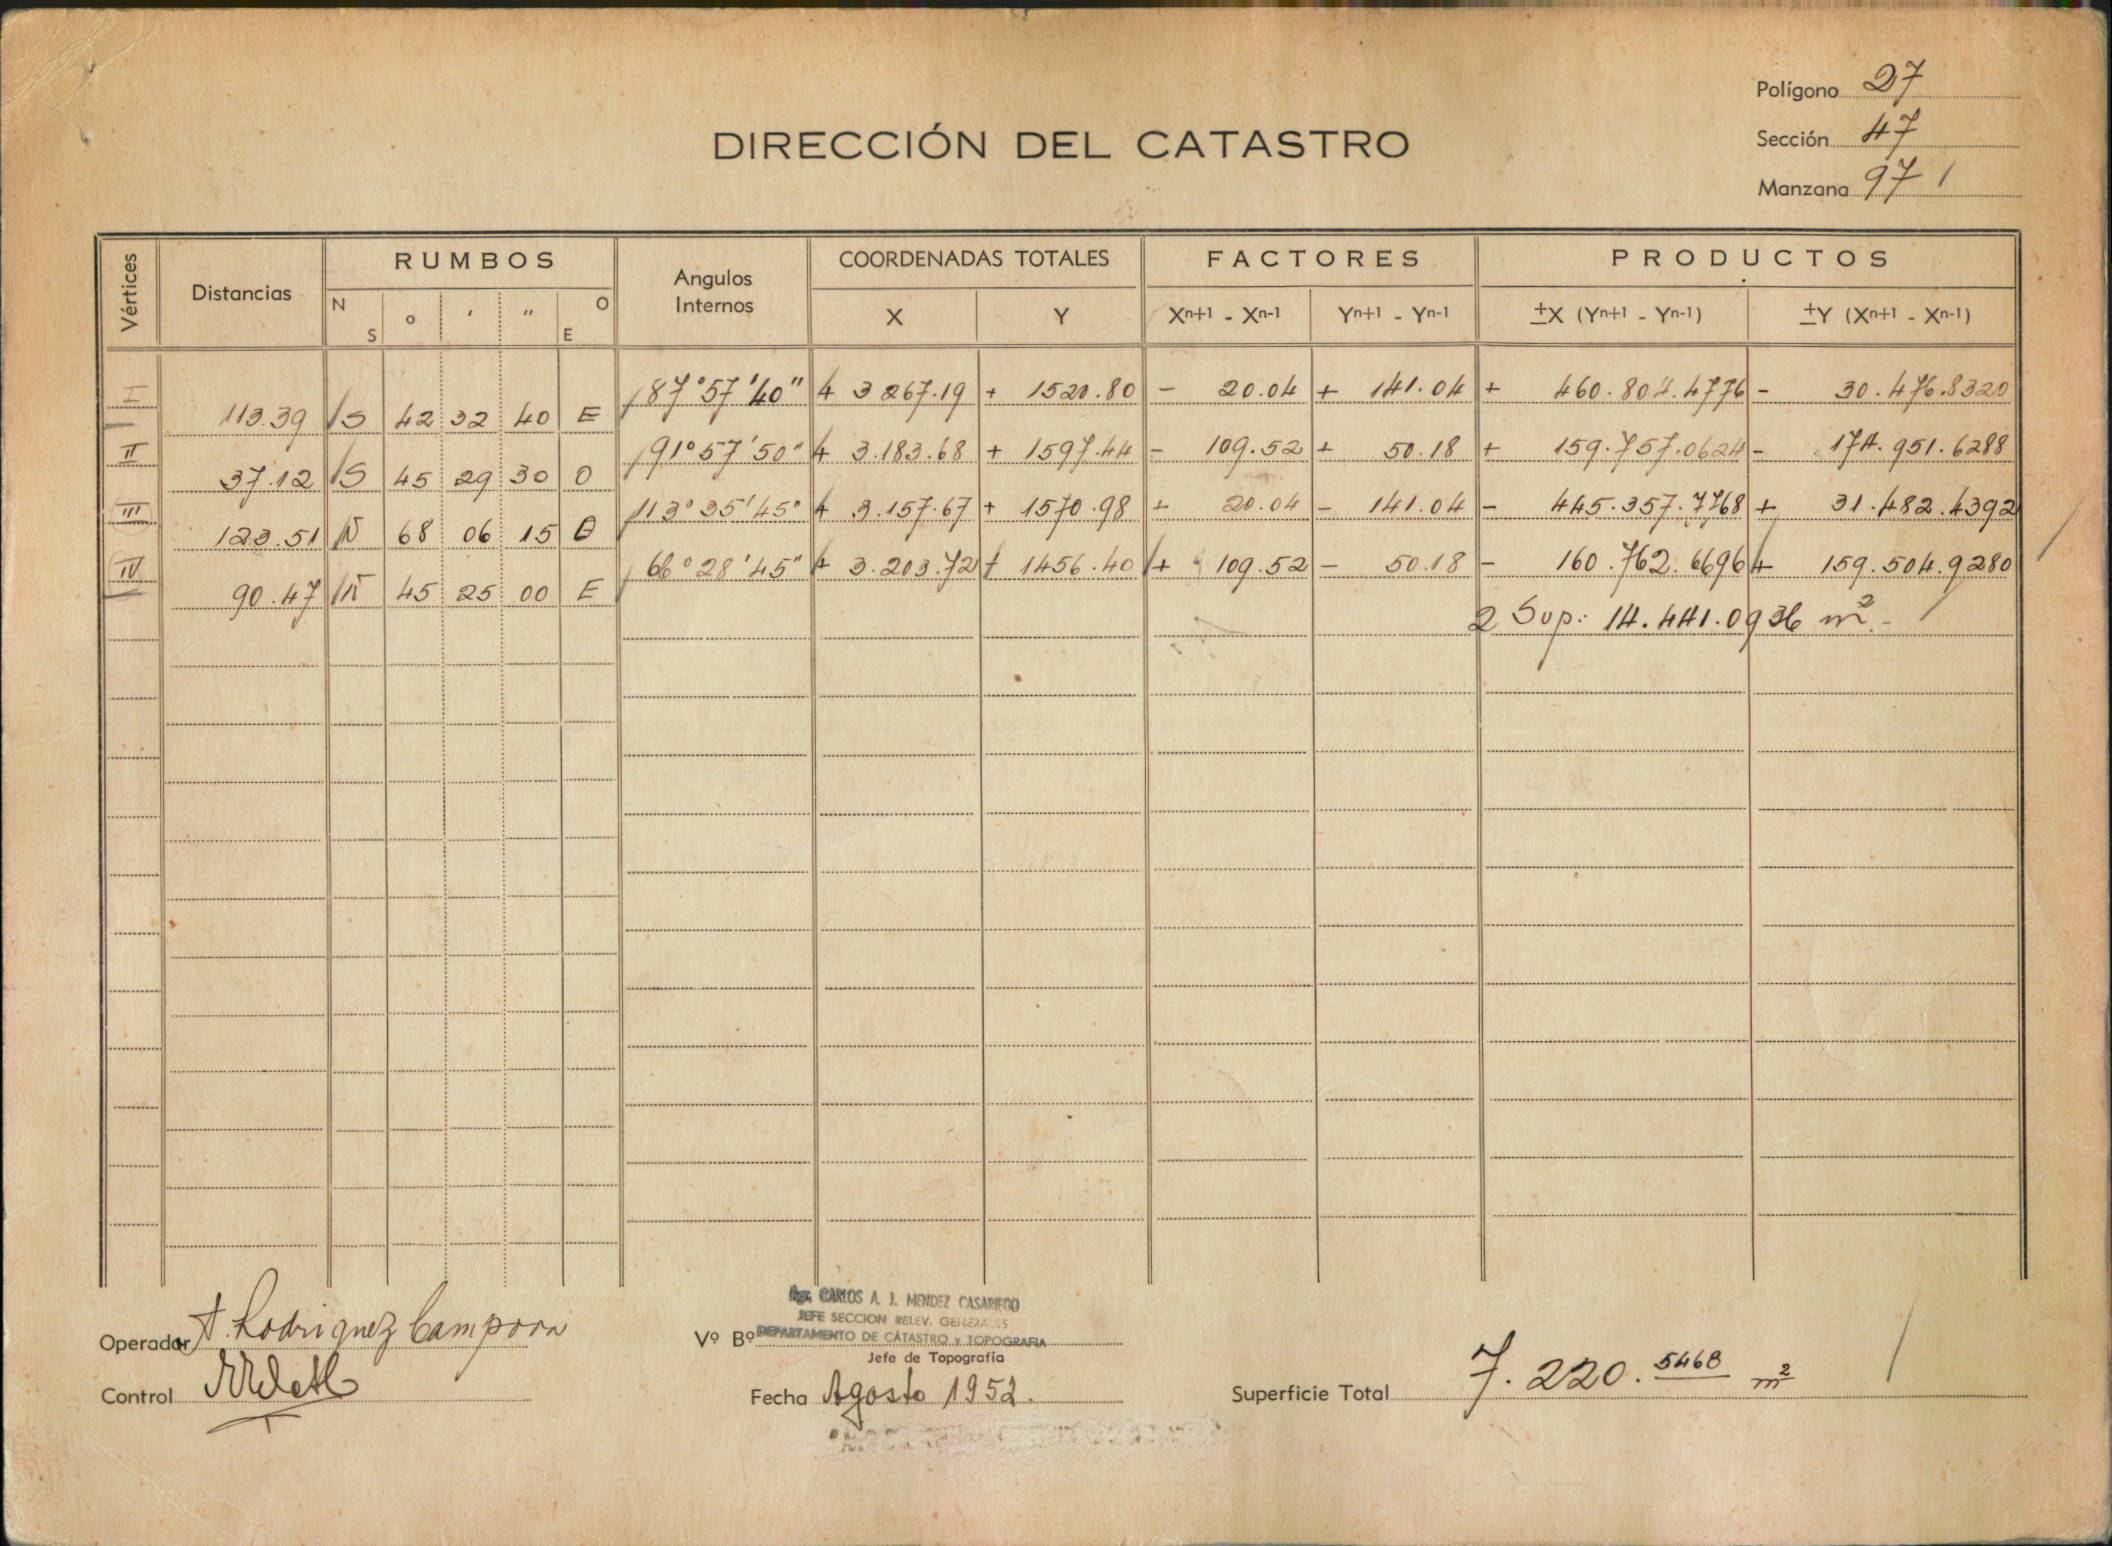 Polígono 27
DIRECCIÓN DEL CATASTRO
Sección 47
Manzana 97
Vértices Distancias RUMBOS Angulos Internos COORDENADAS TOTALES FACTORES PRODUCTOS
N S o ' " O E X Y Xn+1 - Xn-1 Yn+1 - Yn-1 ±X (Yn+1 - Yn-1) ±Y (Xn+1 - Xn-1)
I 87°57'40" + 3267.19 + 1520.80 - 20.04 + 141.04 + 460.804.4776 - 30.476.8320
113.39 S 42 32 40 E
II 91°57'50" + 3.183.68 + 1597.44 - 109.52 + 50.18 + 159.757.0624 - 174.951.6288
37.12 S 45 29 30 O
III 113°35'45" + 3.157.67 + 1570.98 + 20.04 - 141.04 - 445.357.7768 + 31.482.4392
123.51 N 68 06 15 O
IV 66°28'45" + 3.203.72 + 1456.40 + 109.52 - 50.18 - 160.762.6696 + 159.504.9280
90.47 N 45 25 00 E
2 Sup: 14.441.0936 m².-
Operador A. Rodriguez Campora
Agr. CARLOS A. J. MENDEZ CASARIEGO
JEFE SECCION RELEV. GENERALES
Vº Bº DEPARTAMENTO DE CATASTRO y TOPOGRAFIA
Jefe de Topografía
Control
Fecha Agosto 1952.
Superficie Total 7.220.5468 m²